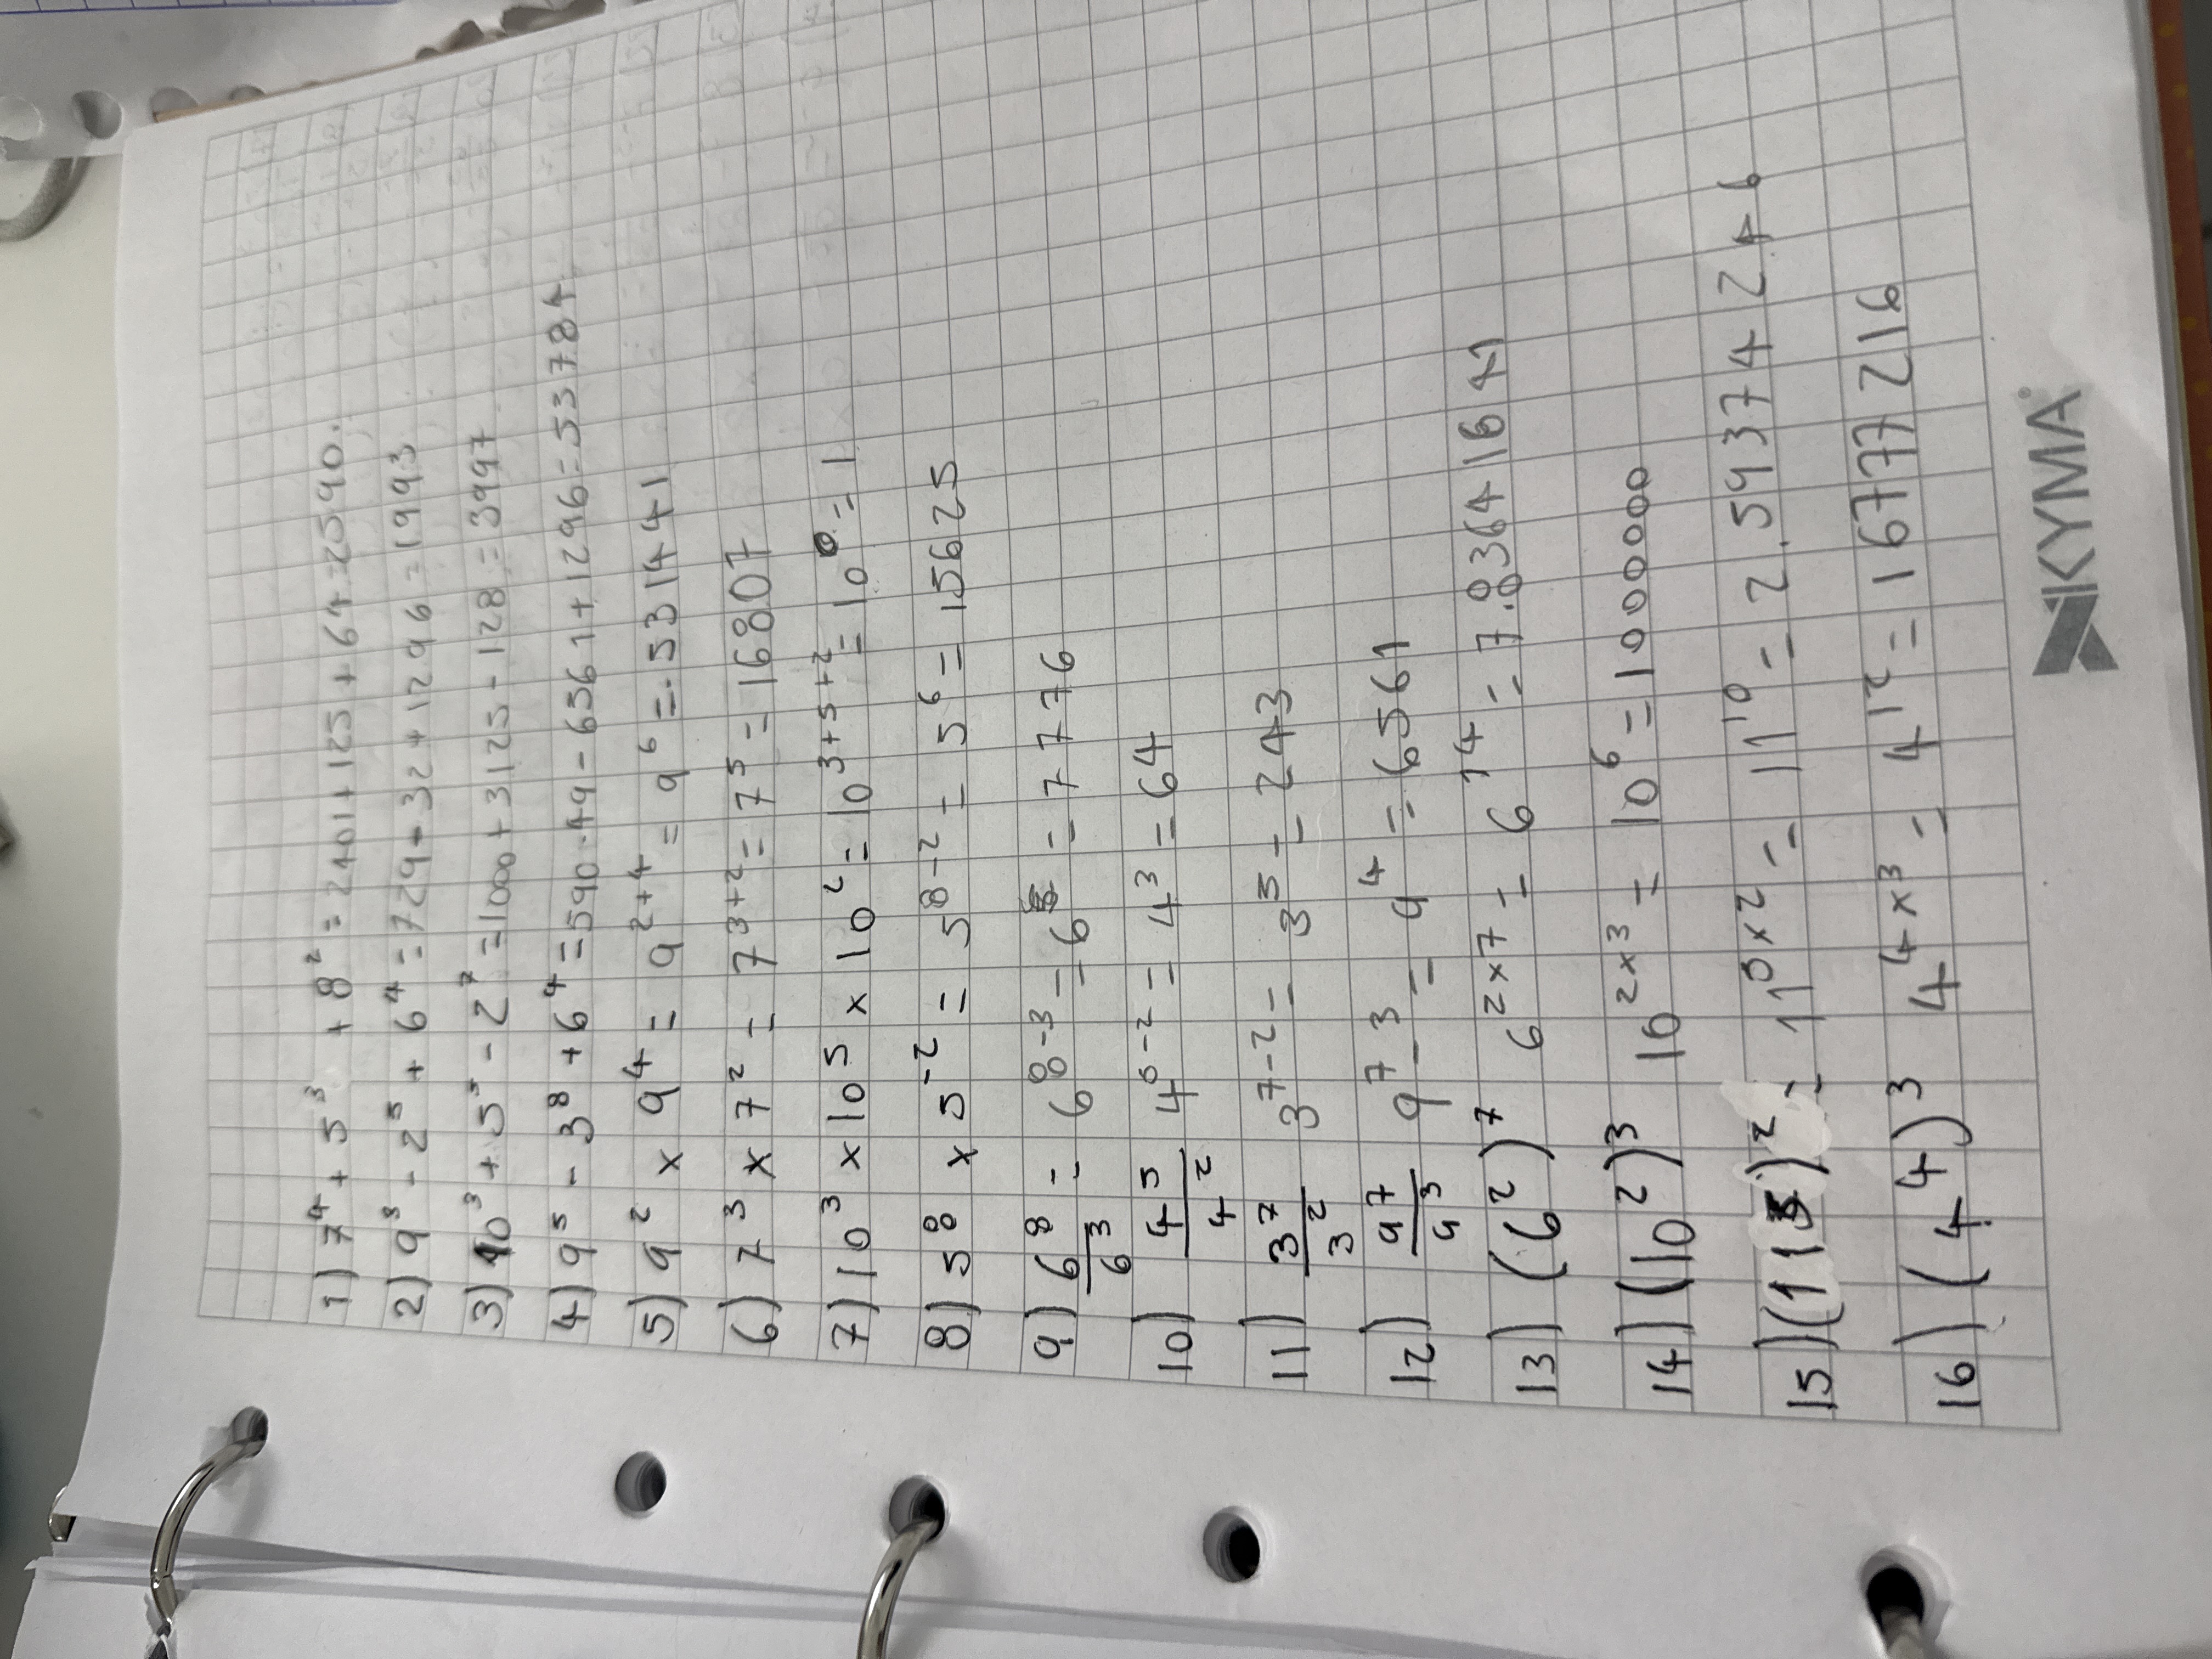 1) 7⁴ + 5³ + 8² = 2401 + 125 + 64 = 2590.
2) 9³ - 2⁵ + 6⁴ = 729 - 32 + 1296 = 1993
3) 10³ + 5⁵ - 2⁷ = 1000 + 3125 - 128 = 3997
4) 9⁵ - 3⁸ + 6⁴ = 590.49 - 6561 + 1296 = 53784
5) 9² x 9⁴ = 9²⁺⁴ = 9⁶ = 531441
6) 7³ x 7² = 7³⁺² = 7⁵ = 16807
7) 10³ x 10⁵ x 10² = 10³⁺⁵⁺² = 10⁰ = 1
8) 5⁸ x 5⁻² = 5⁸⁻² = 5⁶ = 15625
9) 6⁸/6³ = 6⁸⁻³ = 6⁵ = 7776
10) 4⁵/4² 4⁵⁻² = 4³ = 64
11) 3⁷/3² 3⁷⁻² = 3⁵ = 243
12) 9⁷/9³ 9⁷⁻³ = 9⁴ = 6561
13) (6²)⁷ 6²ˣ⁷ = 6¹⁴ = 7.8364164
14) (10²)³ 10²ˣ³ = 10⁶ = 1000000
15) (11⁵)² = 11⁵ˣ² = 11¹⁰ = 2.59374246
16) (4⁴)³ 4⁴ˣ³ = 4¹² = 16777216
KYMA